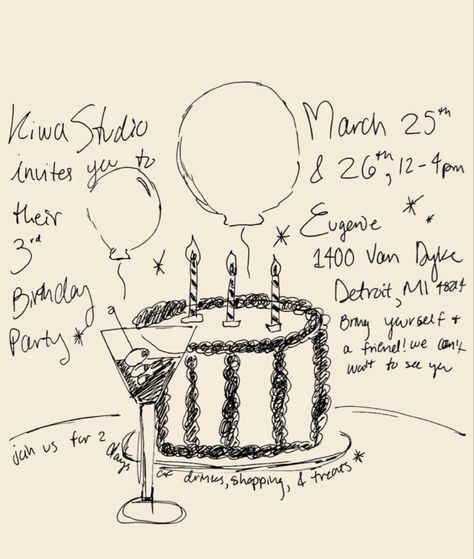 Kiwa Studio
invites you to
their
3rd
Birthday
Party*
March 25th
& 26th, 12-4pm
Eugenie
1400 Van Dyke
Detroit, MI 48214
Bring yourself &
a friend! we can't
wait to see you
join us for 2
days
of drinks, shopping, & treats*